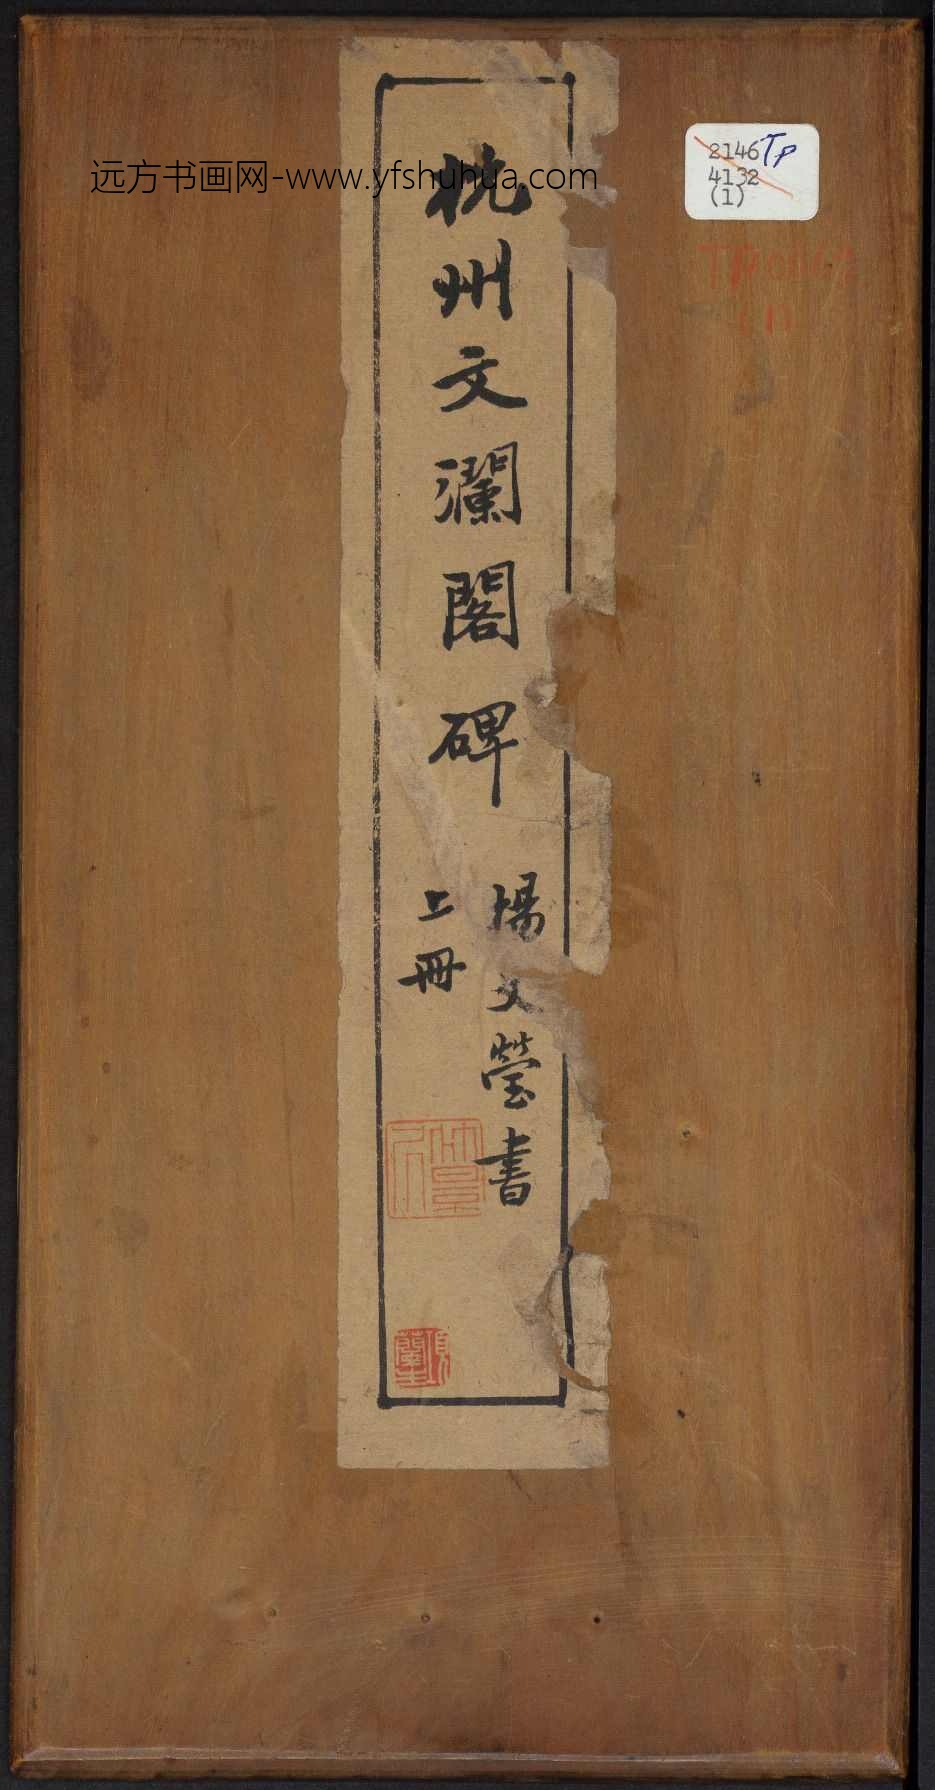 远方书画网-www.yfshuhua.com
2146 TP
4132
(1)
杭州文瀾閣碑
楊文瑩書
上冊